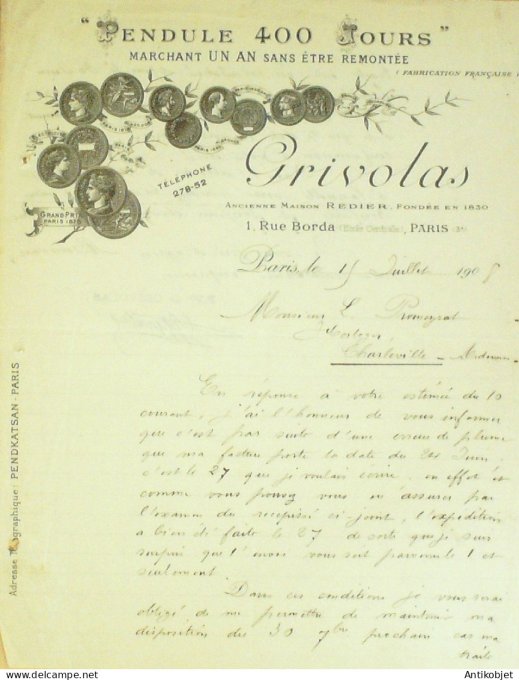 "PENDULE 400 JOURS"
MARCHANT UN AN SANS ÊTRE REMONTÉE
(FABRICATION FRANÇAISE)
TÉLÉPHONE
278-52
Grivolas
ANCIENNE MAISON REDIER, FONDÉE EN 1830
GRAND PRIX
PARIS
1, RUE BORDA (École Centrale), PARIS (3e)
Paris, le 15 Juillet 190
Monsieur L.
Horloger
Charleville - Ardennes
En réponse à votre estimée du 10
courant, j'ai l'honneur de vous informer
que c'est par suite d'une erreur de plume
que ma facture porte la date du Juin
c'est le 27 que je voulais écrire, en effet et
comme vous pouvez vous en assurer par
l'examen du récépissé ci-joint, l'expédition
a bien été faite le 27 de sorte que je suis
surpris que l'envoi vous soit parvenu le 1 et
seulement.
Dans ces conditions je vous serai
obligé de me permettre de maintenir ma
disposition du 30 7bre prochain car ma
traite
Adresse Télégraphique: PENDKATSAN-PARIS
© Antikobjet